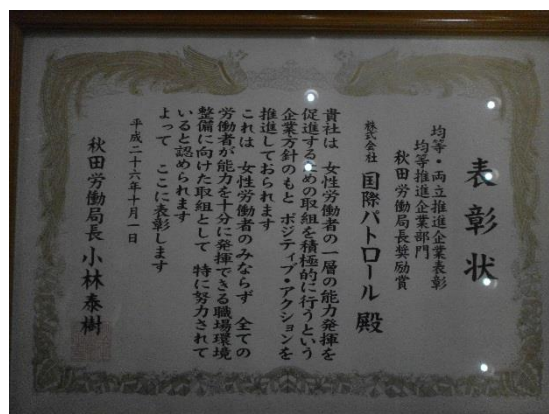 表彰状
均等・両立推進企業表彰
均等推進企業部門
秋田労働局長奨励賞
株式会社 国際パトロール 殿
貴社は 女性労働者の一層の能力発揮を
促進するための取組を積極的に行うという
企業方針のもと ポジティブ・アクションを
推進しておられます
これは 女性労働者のみならず 全ての
労働者が能力を十分に発揮できる職場環境
整備に向けた取組として 特に努力されて
いると認められます
よって ここに表彰します
平成二十六年十月一日
秋田労働局長 小林泰樹